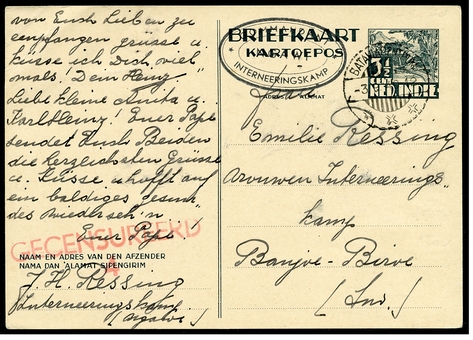 von Euch Lieben zu
empfangen grüsse u.
küsse ich Dich, viel
mals! Dein Heinz.
Liebe kleine Anita u.
Karlheinz! Euer Papi
sendet Euch Beiden
die herzlichsten Grüsse
u. Küsse u. hofft auf
ein baldiges gesun-
des Wiederseh'n
Euer Papi!
GECENSUREERD
NAAM EN ADRES VAN DEN AFZENDER
NAMA DAN ALAMAT SIPENGIRIM
J. H. Ressing
Interneeringskamp
BRIEFKAART
KARTOEPOS
INTERNEERINGSKAMP
ADRES ALAMAT
3½
NED. INDIE
Frau
Emilie Ressing
Vrouwen Interneerings-
kamp
Banjoe-Biroe